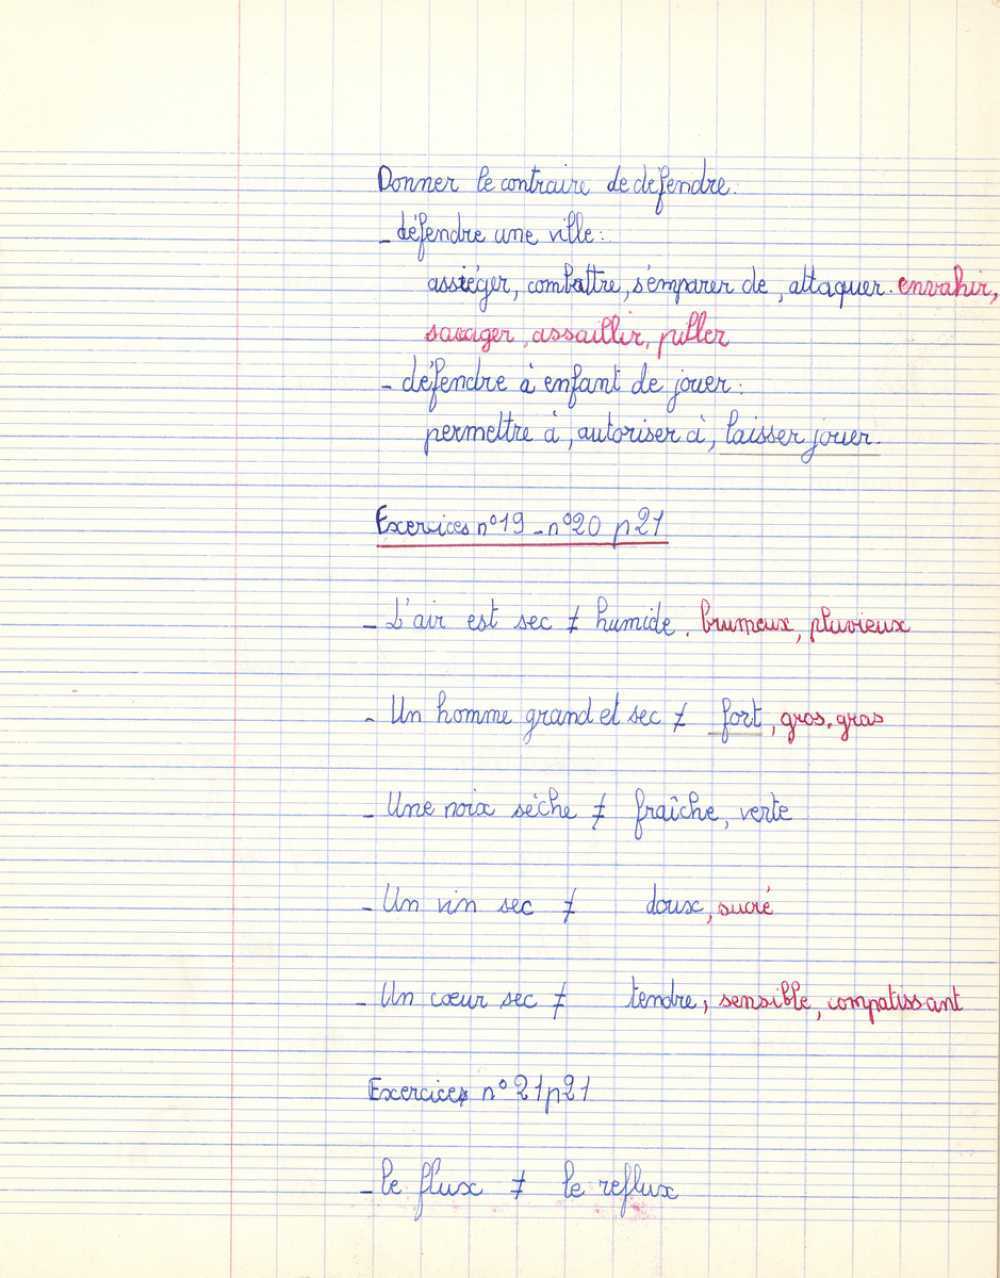 Donner le contraire de défendre.
- défendre une ville :
assiéger, combattre, s'emparer de, attaquer. envahir,
saccager, assaillir, piller
- défendre à enfant de jouer :
permettre à, autoriser à, laisser jouer.
Exercices n°19 - n°20 p21
- L'air est sec ≠ humide, brumeux, pluvieux
- Un homme grand et sec ≠ fort, gros, gras
- Une noix sèche ≠ fraîche, verte
- Un vin sec ≠ doux, sucré
- Un cœur sec ≠ tendre, sensible, compatissant
Exercice n° 21 p21
- le flux ≠ le reflux